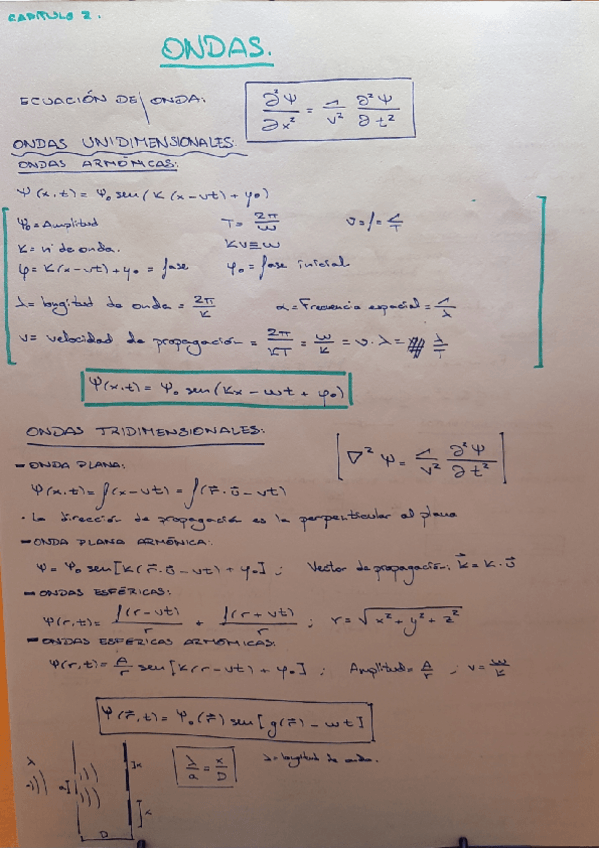 CAPÍTULO 2.
ONDAS.
ECUACIÓN DE ONDA: ∂²Ψ/∂x² = 1/v² ∂²Ψ/∂t²
ONDAS UNIDIMENSIONALES:
ONDAS ARMÓNICAS:
Ψ(x,t) = Ψ₀ sen(K(x-vt)+φ₀)
Ψ₀ = Amplitud T = 2π/ω ν = f = 1/T
K = nº de onda. Kv ≡ ω
φ = K(x-vt)+φ₀ = fase φ₀ = fase inicial
λ = longitud de onda = 2π/K α = Frecuencia espacial = 1/λ
v = velocidad de propagación = 2π/KT = ω/K = ν·λ = λ/T
Ψ(x,t) = Ψ₀ sen(Kx - ωt + φ₀)
ONDAS TRIDIMENSIONALES: [∇²Ψ = 1/v² ∂²Ψ/∂t²]
- ONDA PLANA:
Ψ(x,t) = f(x-vt) = f(r⃗·u⃗ - vt)
· La dirección de propagación es la perpenticular al plana
- ONDA PLANA ARMÓNICA:
Ψ = Ψ₀ sen[K(r⃗·u⃗ - vt) + φ₀] ; Vector de propagación: k⃗ = K·u⃗
- ONDAS ESFÉRICAS:
Ψ(r,t) = f(r-vt)/r + f(r+vt)/r ; r = √x²+y²+z²
- ONDAS ESFÉRICAS ARMÓNICAS:
Ψ(r,t) = A/r sen[K(r-vt)+φ₀] ; Amplitud = A/r ; v = ω/K
Ψ(r⃗,t) = Ψ₀(r⃗) sen[g(r⃗) - ωt]
λ a] ]x λ/a = x/D λ = longitud de onda.
D